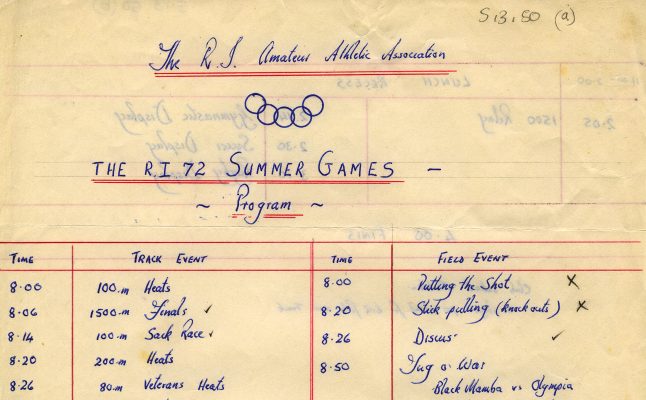 S.13.50 (a)
The R.I. Amateur Athletic Association
THE R.I 72 SUMMER GAMES -
~ Program ~
TIME TRACK EVENT TIME FIELD EVENT
8.00 100.m Heats 8.00 Putting The Shot X
8.06 1500.m Finals ✓ 8.20 Stick pulling (knock outs) X
8.14 100.m Sack Race ✓ 8.26 Discus ✓
8.20 200.m Heats 8.50 Tug o' War
8.26 80.m Veterans Heats Black Mamba vs Olympia